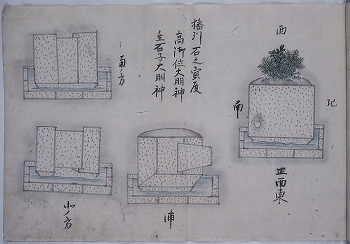 播州石之寶殿
高御位大明神
生石子大明神
西
北
南
正面東
南ノ方
北ノ方